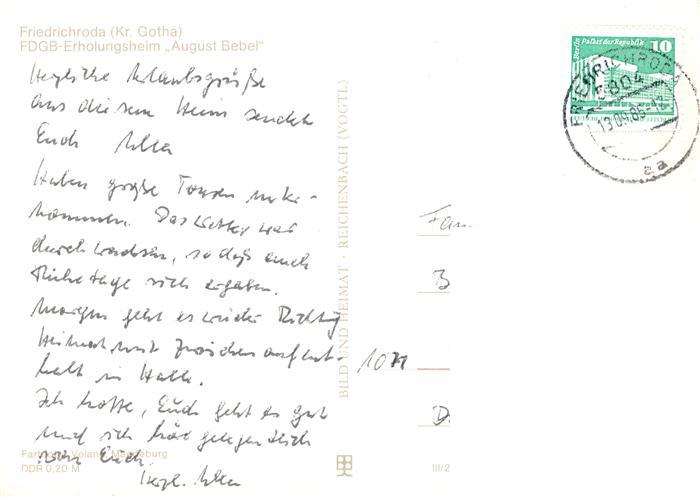 Friedrichroda (Kr. Gotha)
FDGB-Erholungsheim „August Bebel"
Herzliche Urlaubsgrüße
aus diesem Heim sendet
Euch Ulla
Haben große Touren unter-
nommen. Das Wetter war
durchwachsen, so daß auch
Ruhetage sich ergaben.
Morgen geht es wieder Richtung
Heimat mit Zwischenaufent-
halt in Halle.
Ich hoffe, Euch geht es gut
und ich hör gelegentlich
von Euch.
Herzl. Ulla
Magdeburg
DDR 0,20 M
BILD UND HEIMAT · REICHENBACH (VOGTL)
III/2
Berlin Palast der Republik
10
FRIEDRICHRODA
5804
13.09.85-12
aa
Fam
B
107
D